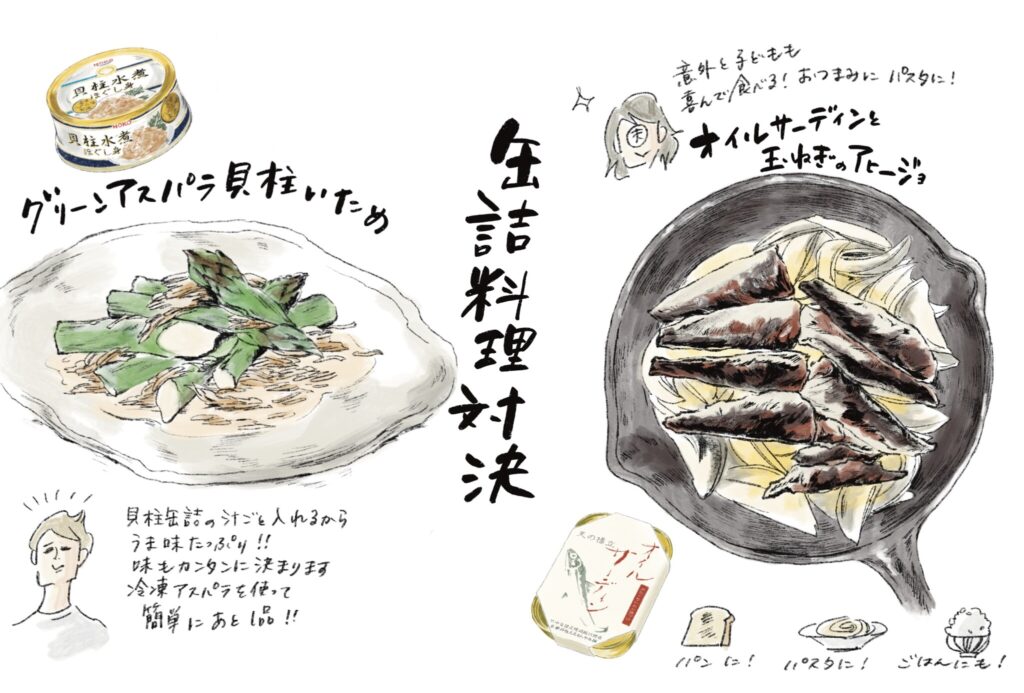 HOKO
貝柱水煮
ほぐし身
HOKO
貝柱水煮
ほぐし身
グリーンアスパラ貝柱いため
貝柱缶詰の汁ごと入れるから
うま味たっぷり!!
味もカンタンに決まります
冷凍アスパラを使って
簡単にあと1品!!
缶詰料理対決
意外と子どもも
喜んで食べる!おつまみに パスタに!
オイルサーディンと
玉ねぎのアヒージョ
天の橋立
オイル
サーディン
パンに!
パスタに!
ごはんにも!